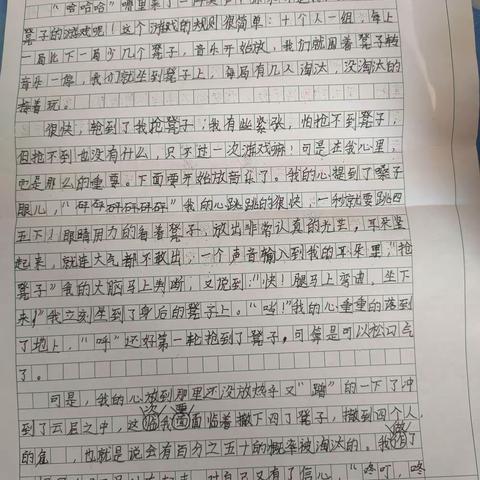 "哈哈哈"哪里来了一阵笑声
凳子的游戏呢！这个游戏的规则很简单：十个人一组，每上
一局比下一局少几个凳子，音乐开始放，我们就围着凳子转
音乐一停，我们就坐到凳子上，每局有几人淘汰，没淘汰的
接着玩。
很快，轮到了我抢凳子，我有些紧张，怕抢不到凳子，
但抢不到也没有什么，只不过一次游戏嘛！可是在我心里，
是那么的重要。下面要开始放音乐了。我的心提到了嗓子
眼儿，"砰砰砰砰砰"我的心跳跳的很快，一秒就要跳四
五下！眼睛用力的看着凳子，放出非常认真的光芒，耳朵竖
起来，就连大气都不敢出，一个声音输入到我的耳朵里，"抢
凳子"我的大脑马上判断，又说到："快！腿马上弯曲，坐下
来！"我立刻坐到了身后的凳子上。"咄！"我的心重重的落到
了地上，"呼"还好第一轮抢到了凳子，可算是可以松口气
了。
可是，我的心放到那里还没放热乎又"蹭"的一下了冲
到了云层之中，这次我要面临着撤下四个凳子，撤到四个人
的危，也就是说会有百分之五十的概率被淘汰的。我做了
对自己又有了信心，"咚叮，咚